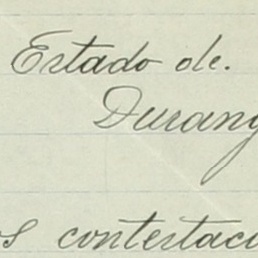 Estado de.
Durang
os contestaci